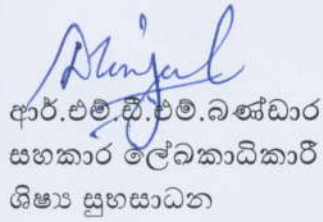 ආර්.එම්.ඩී.එම්.බණ්ඩාර
සහකාර ලේඛකාධිකාරී
ශිෂ්‍ය සුභසාධන